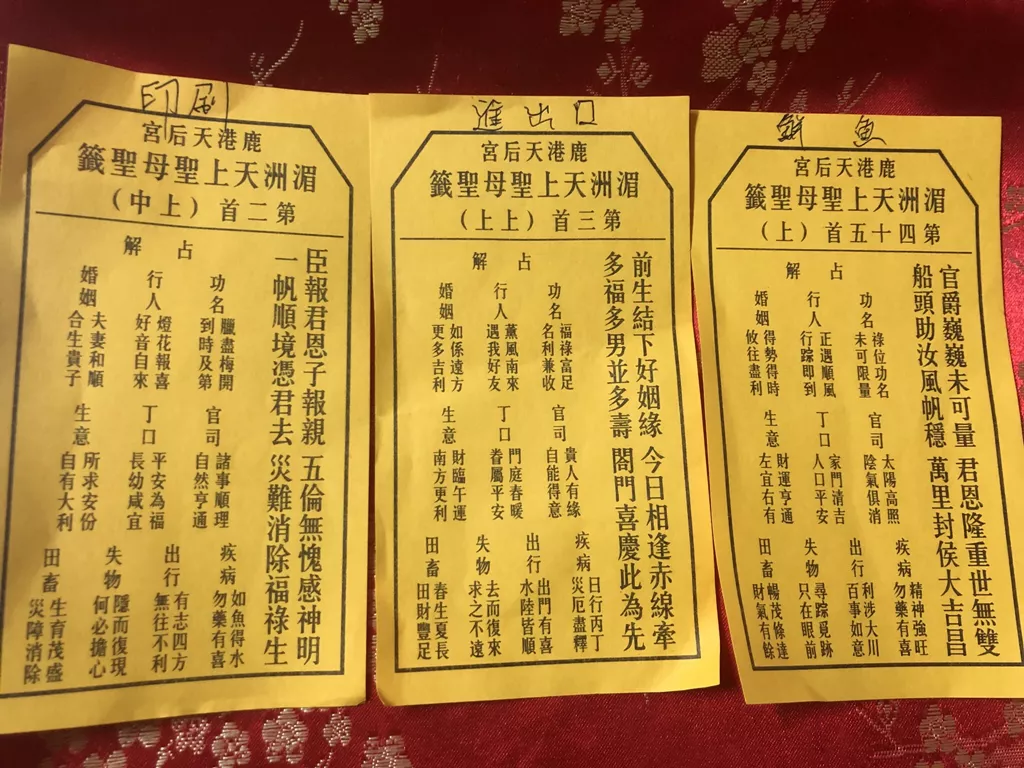 印刷
鹿港天后宮
湄洲天上聖母聖籤
第二首（上中）
臣報君恩子報親 五倫無愧感神明
一帆順境憑君去 災難消除福祿生
占解
功名 臘盡梅開
到時及第
行人 燈花報喜
好音自來
婚姻 夫妻和順
合生貴子
官司 諸事順理
自然亨通
丁口 平安為福
長幼咸宜
生意 所求安份
自有大利
疾病 如魚得水
勿藥有喜
出行 有志四方
無往不利
失物 隱而復現
何必擔心
田畜 生育茂盛
災障消除
進出口
鹿港天后宮
湄洲天上聖母聖籤
第三首（上上）
前生結下好姻緣 今日相逢赤線牽
多福多男並多壽 閤門喜慶此為先
占解
功名 福祿富足
名利兼收
行人 薰風南來
遇我好友
婚姻 如係遠方
更多吉利
官司 貴人有緣
自能得意
丁口 門庭春暖
眷屬平安
生意 財臨午運
南方更利
疾病 日行丙丁
災厄盡釋
出行 出門有喜
水陸皆順
失物 去而復來
求之不遠
田畜 春生夏長
田財豐足
鮮魚
鹿港天后宮
湄洲天上聖母聖籤
第四十五首（上）
官爵巍巍未可量 君恩隆重世無雙
船頭助汝風帆穩 萬里封侯大吉昌
占解
功名 祿位功名
未可限量
行人 正遇順風
行踪即到
婚姻 得勢得時
攸往盡利
官司 太陽高照
陰氣俱消
丁口 家門清吉
人口平安
生意 財運亨通
左宜右有
疾病 精神強旺
勿藥有喜
出行 利涉大川
百事如意
失物 尋踪覓跡
只在眼前
田畜 暢茂條達
財氣有餘